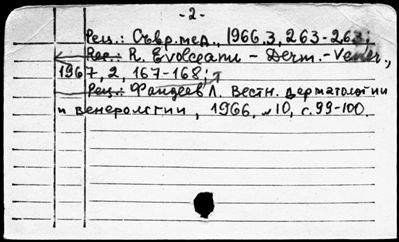 - 2 -
Рец.: Съвр. мед., 1966, 3, 263-263;
Rec.: R. Evolceanu - Derm.-Vener.,
1967, 2, 167-168;
Рец.: Фандеев Л. Вестн. дерматологии
и венерологии, 1966, №10, с. 99-100.